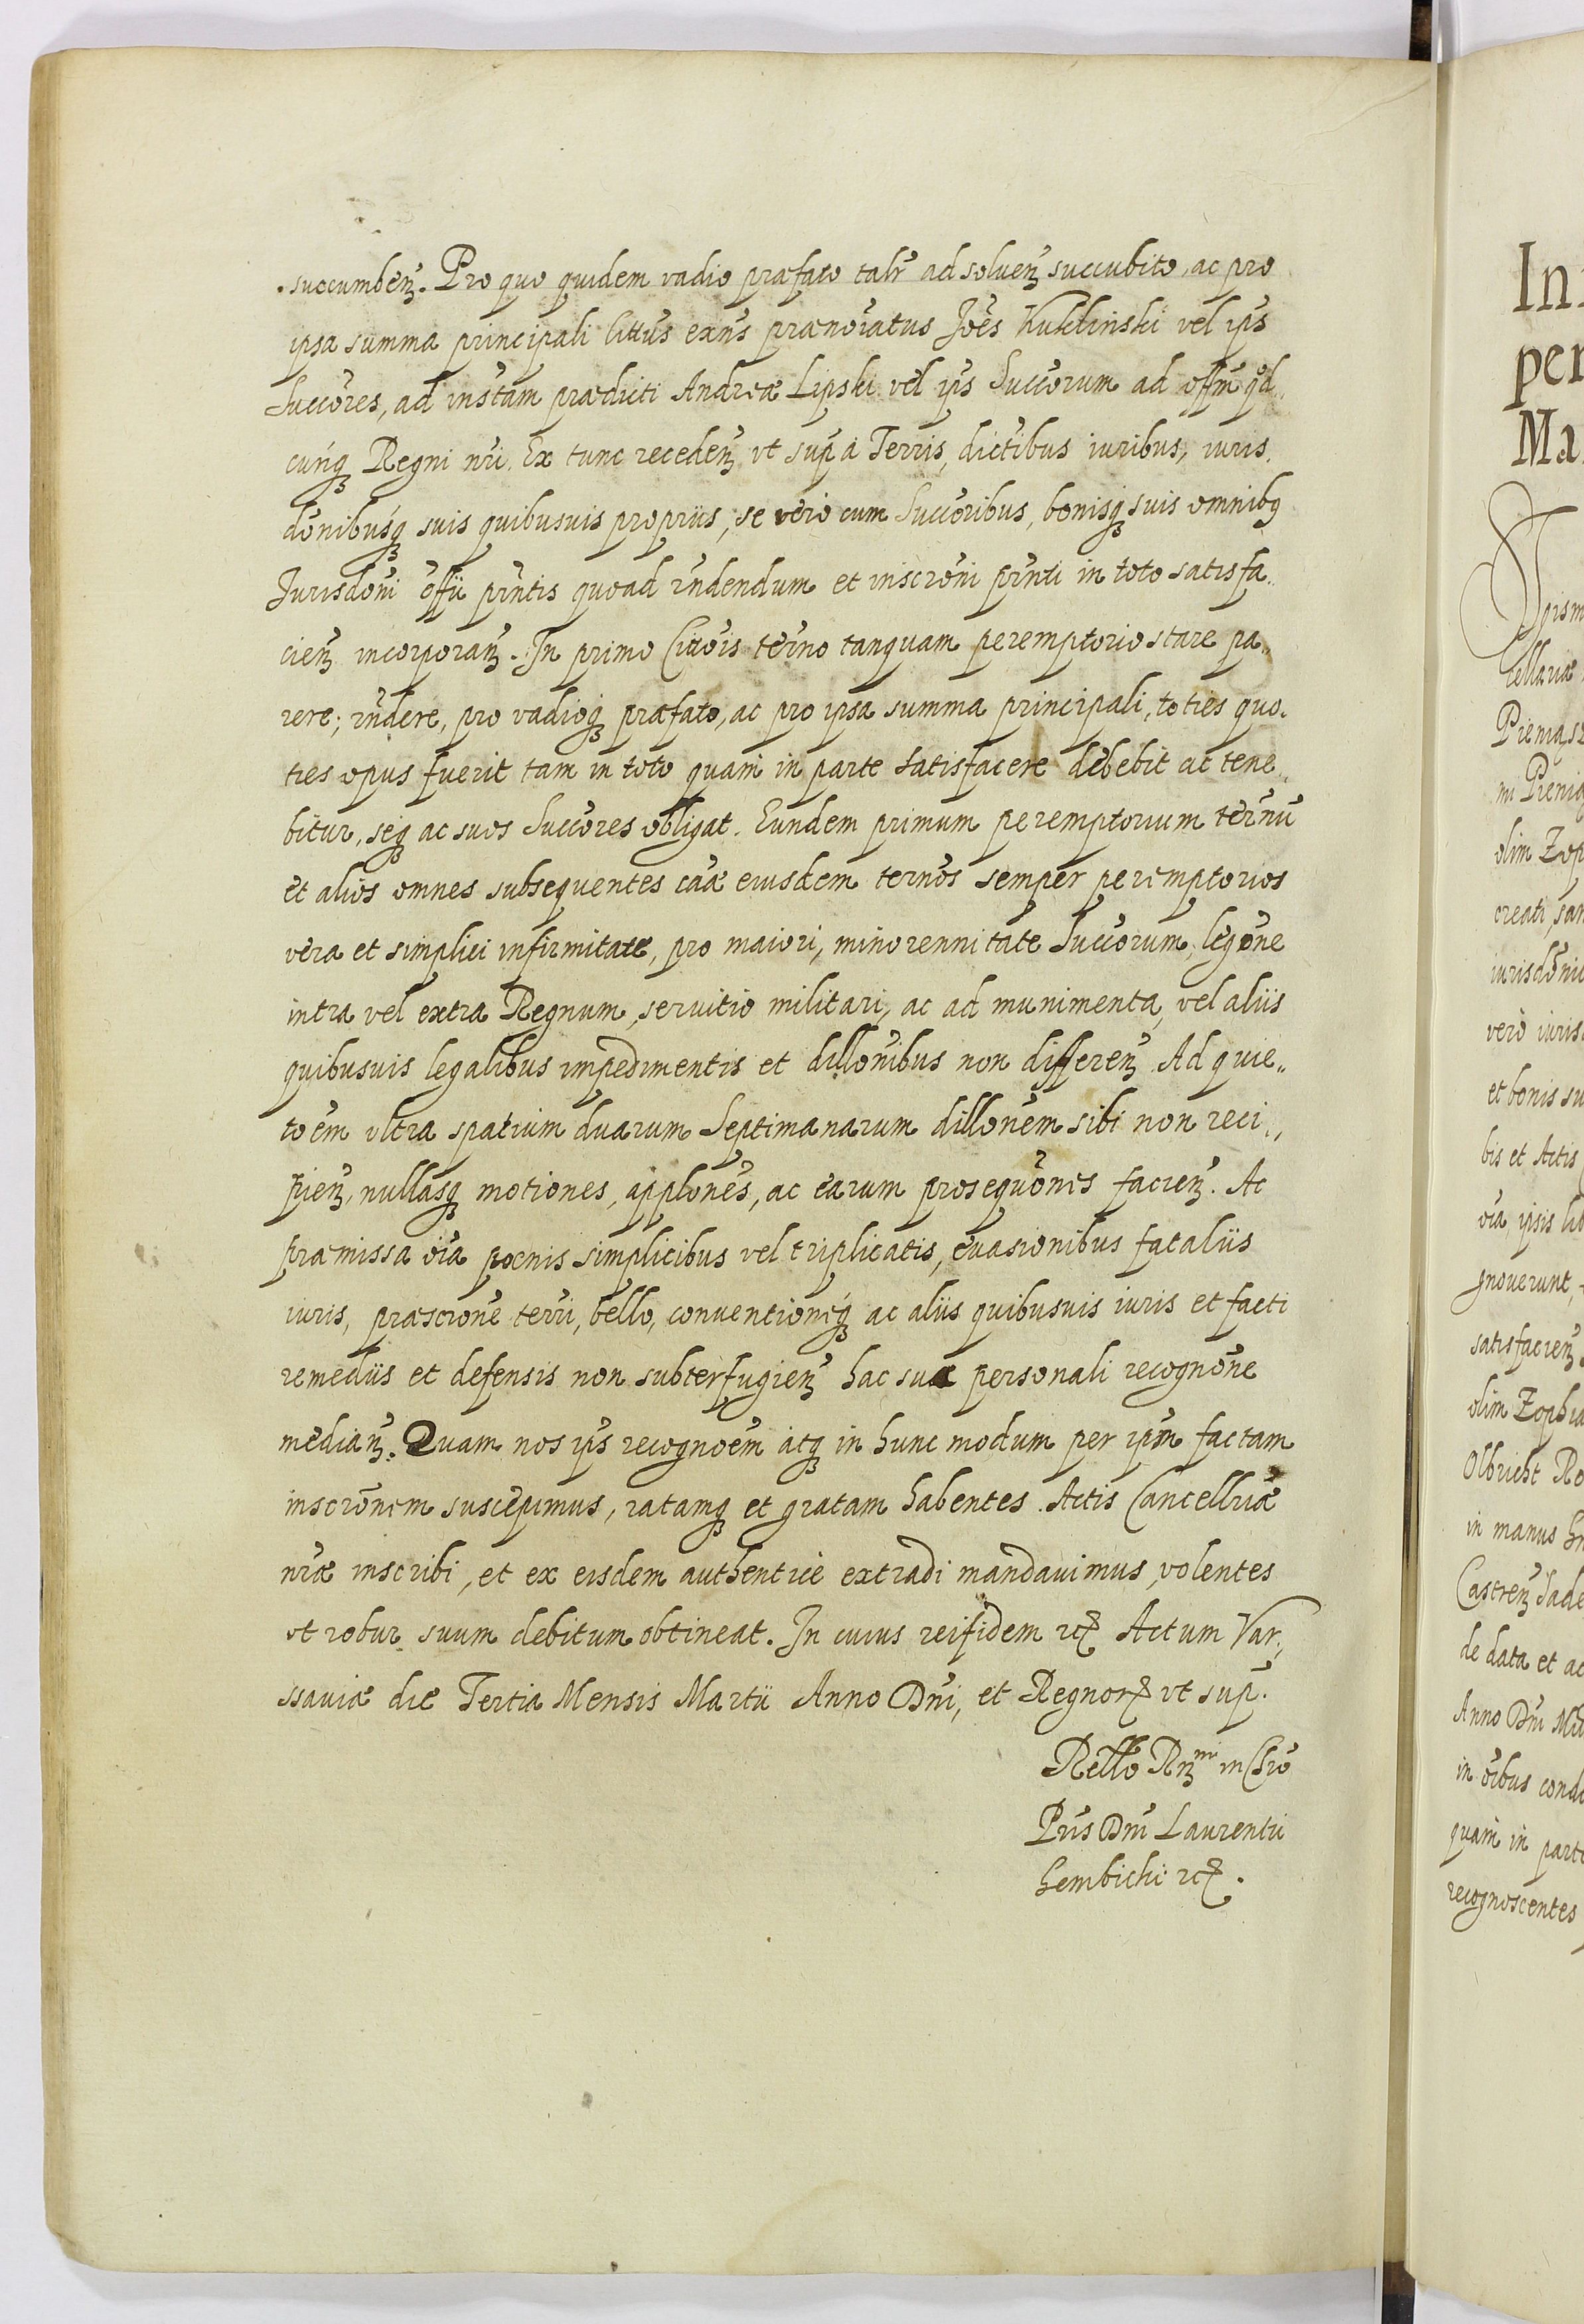 succumbeꝫ. Pro quo quidem vadio præfato talr̃ ad solueꝫ succubito, ac pro
ipsa summa principali Cittũs exñs prænoĩatus Joẽs Kuklinski vel ip̃s
Succõres, ad instam prædicti Andreæ Lipski vel ip̃s Succorum ad offm̃ qd̃
cunqꝫ Regni nr̃i. Ex tunc recedeꝫ vt sup̃ à Terris, dictibus iuribus, iuris
dõnibusqꝫ suis quibusuis propriis, se verò cum Succõribus, bonisqꝫ suis omnibꝰ
Jurisdõni offii prñtis quoad rñdendum et inscrõni prñti in toto satisfa
cieꝫ incorporaꝫ. In primo Cittõis termno tanquam peremptorio stare pa
rere; rñdere, pro vadioqꝫ præfato, ac pro ipsa summa principali, toties quo
ties opus fuerit tam in toto quam in parte satisfacere debebit ac tene
bitur, seqꝫ ac suos Succõres obligat. Eundem primum peremptorium termnũ
et alios omnes subsequentes cãæ eiusdem termnos semper peremptorios
vera et simplici infirmitate, pro maiori, minorennitate Succorum, legõne
intra vel extra Regnum, seruitio militari, ac ad munimenta, vel aliis
quibusuis legalibus impedimentis et dillõnibus non differeꝫ. Ad quie
toẽm vltra spatium duarum Septimanarum dillonẽm sibi non reci
pieꝫ, nullasqꝫ motiones, applõnes, ac earum prosequõnes facieꝫ. Ac
præmissa oĩa pœnis simplicibus vel triplicatis, euasionibus fataliis
iuris, præscrõne terrĩ, bello, conuentioneqꝫ ac aliis quibusuis iuris et facti
remediis et defensis non subterfugieꝫ hac sua personali recognõne
mediaꝫ. Quam nos ip̃s recognoẽm atqꝫ in hunc modum per ip̃m factam
inscrõnem suscepimus, ratamqꝫ et gratam habentes. Actis Cancellriæ
nr̃æ inscribi, et ex eisdem authenticè extradi mandauimus, volentes
vt robur suum debitum obtineat. In cuius rei fidem rcꝫ Actum Var
ssauiæ die Tertia Mensis Martii Anno Dñi, et Regnorꝫ vt sup̃.
Rello Rꝫmi in Chrõ
Pris Dñi Laurentii
Gembicki rcꝫ.
In
per
Ma
cellariæ
olim Zop
creati, san
iurisdõni
verò iuris
et bonis su
bis et Actis
oĩa, ipsis
gnouerunt,
satisfacieꝫ
olim Zophia
Olbricht Ro
in manus
Castreꝫ Sade
de data et ac
Anno Dñi
in oĩbus condi
quam in parte
recognoscentes